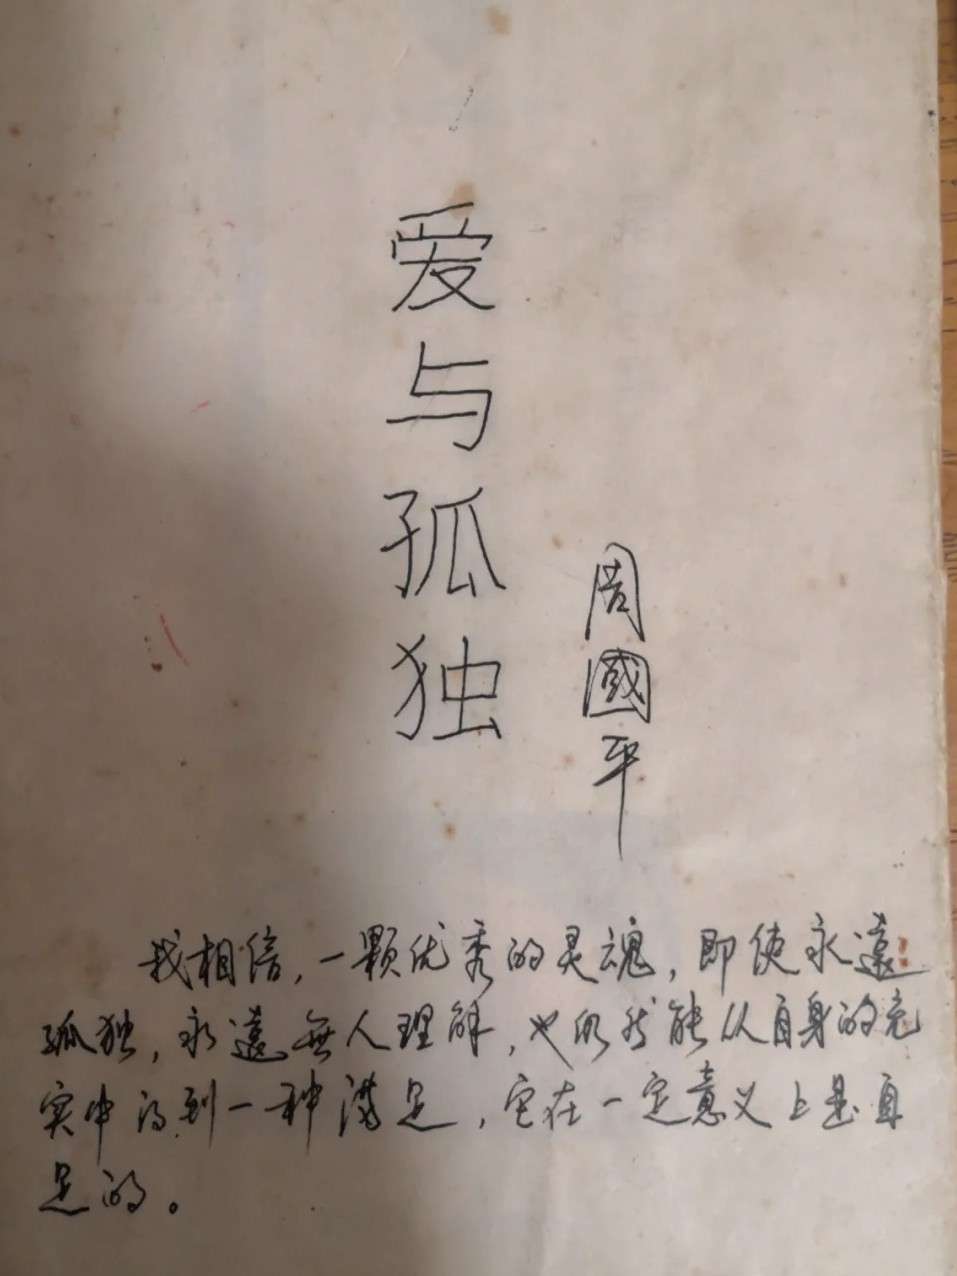 爱与孤独
周國平
我相信,一颗优秀的灵魂,即使永遠
孤独,永遠無人理解,也仍然能从自身的充
实中得到一种满足,它在一定意义上是自
足的。